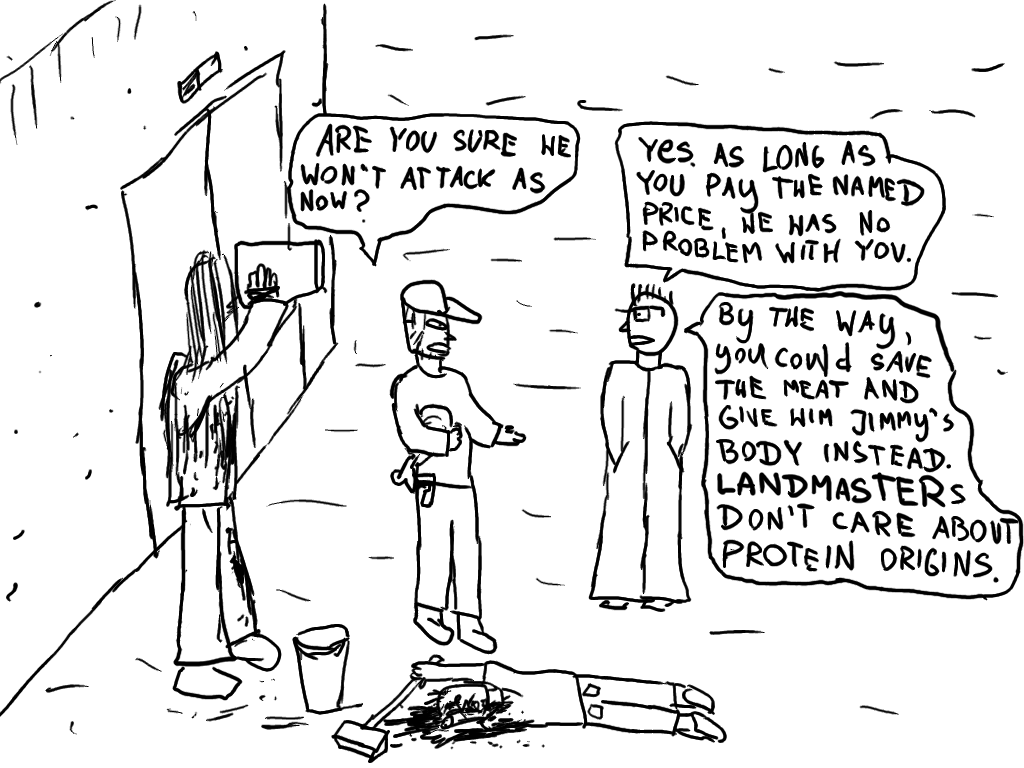 ARE YOU SURE HE
WON'T ATTACK AS
NOW?
YES. AS LONG AS
YOU PAY THE NAMED
PRICE, HE HAS NO
PROBLEM WITH YOU.
BY THE WAY,
YOU COULD SAVE
THE MEAT AND
GIVE HIM JIMMY'S
BODY INSTEAD.
LANDMASTERS
DON'T CARE ABOUT
PROTEIN ORIGINS.